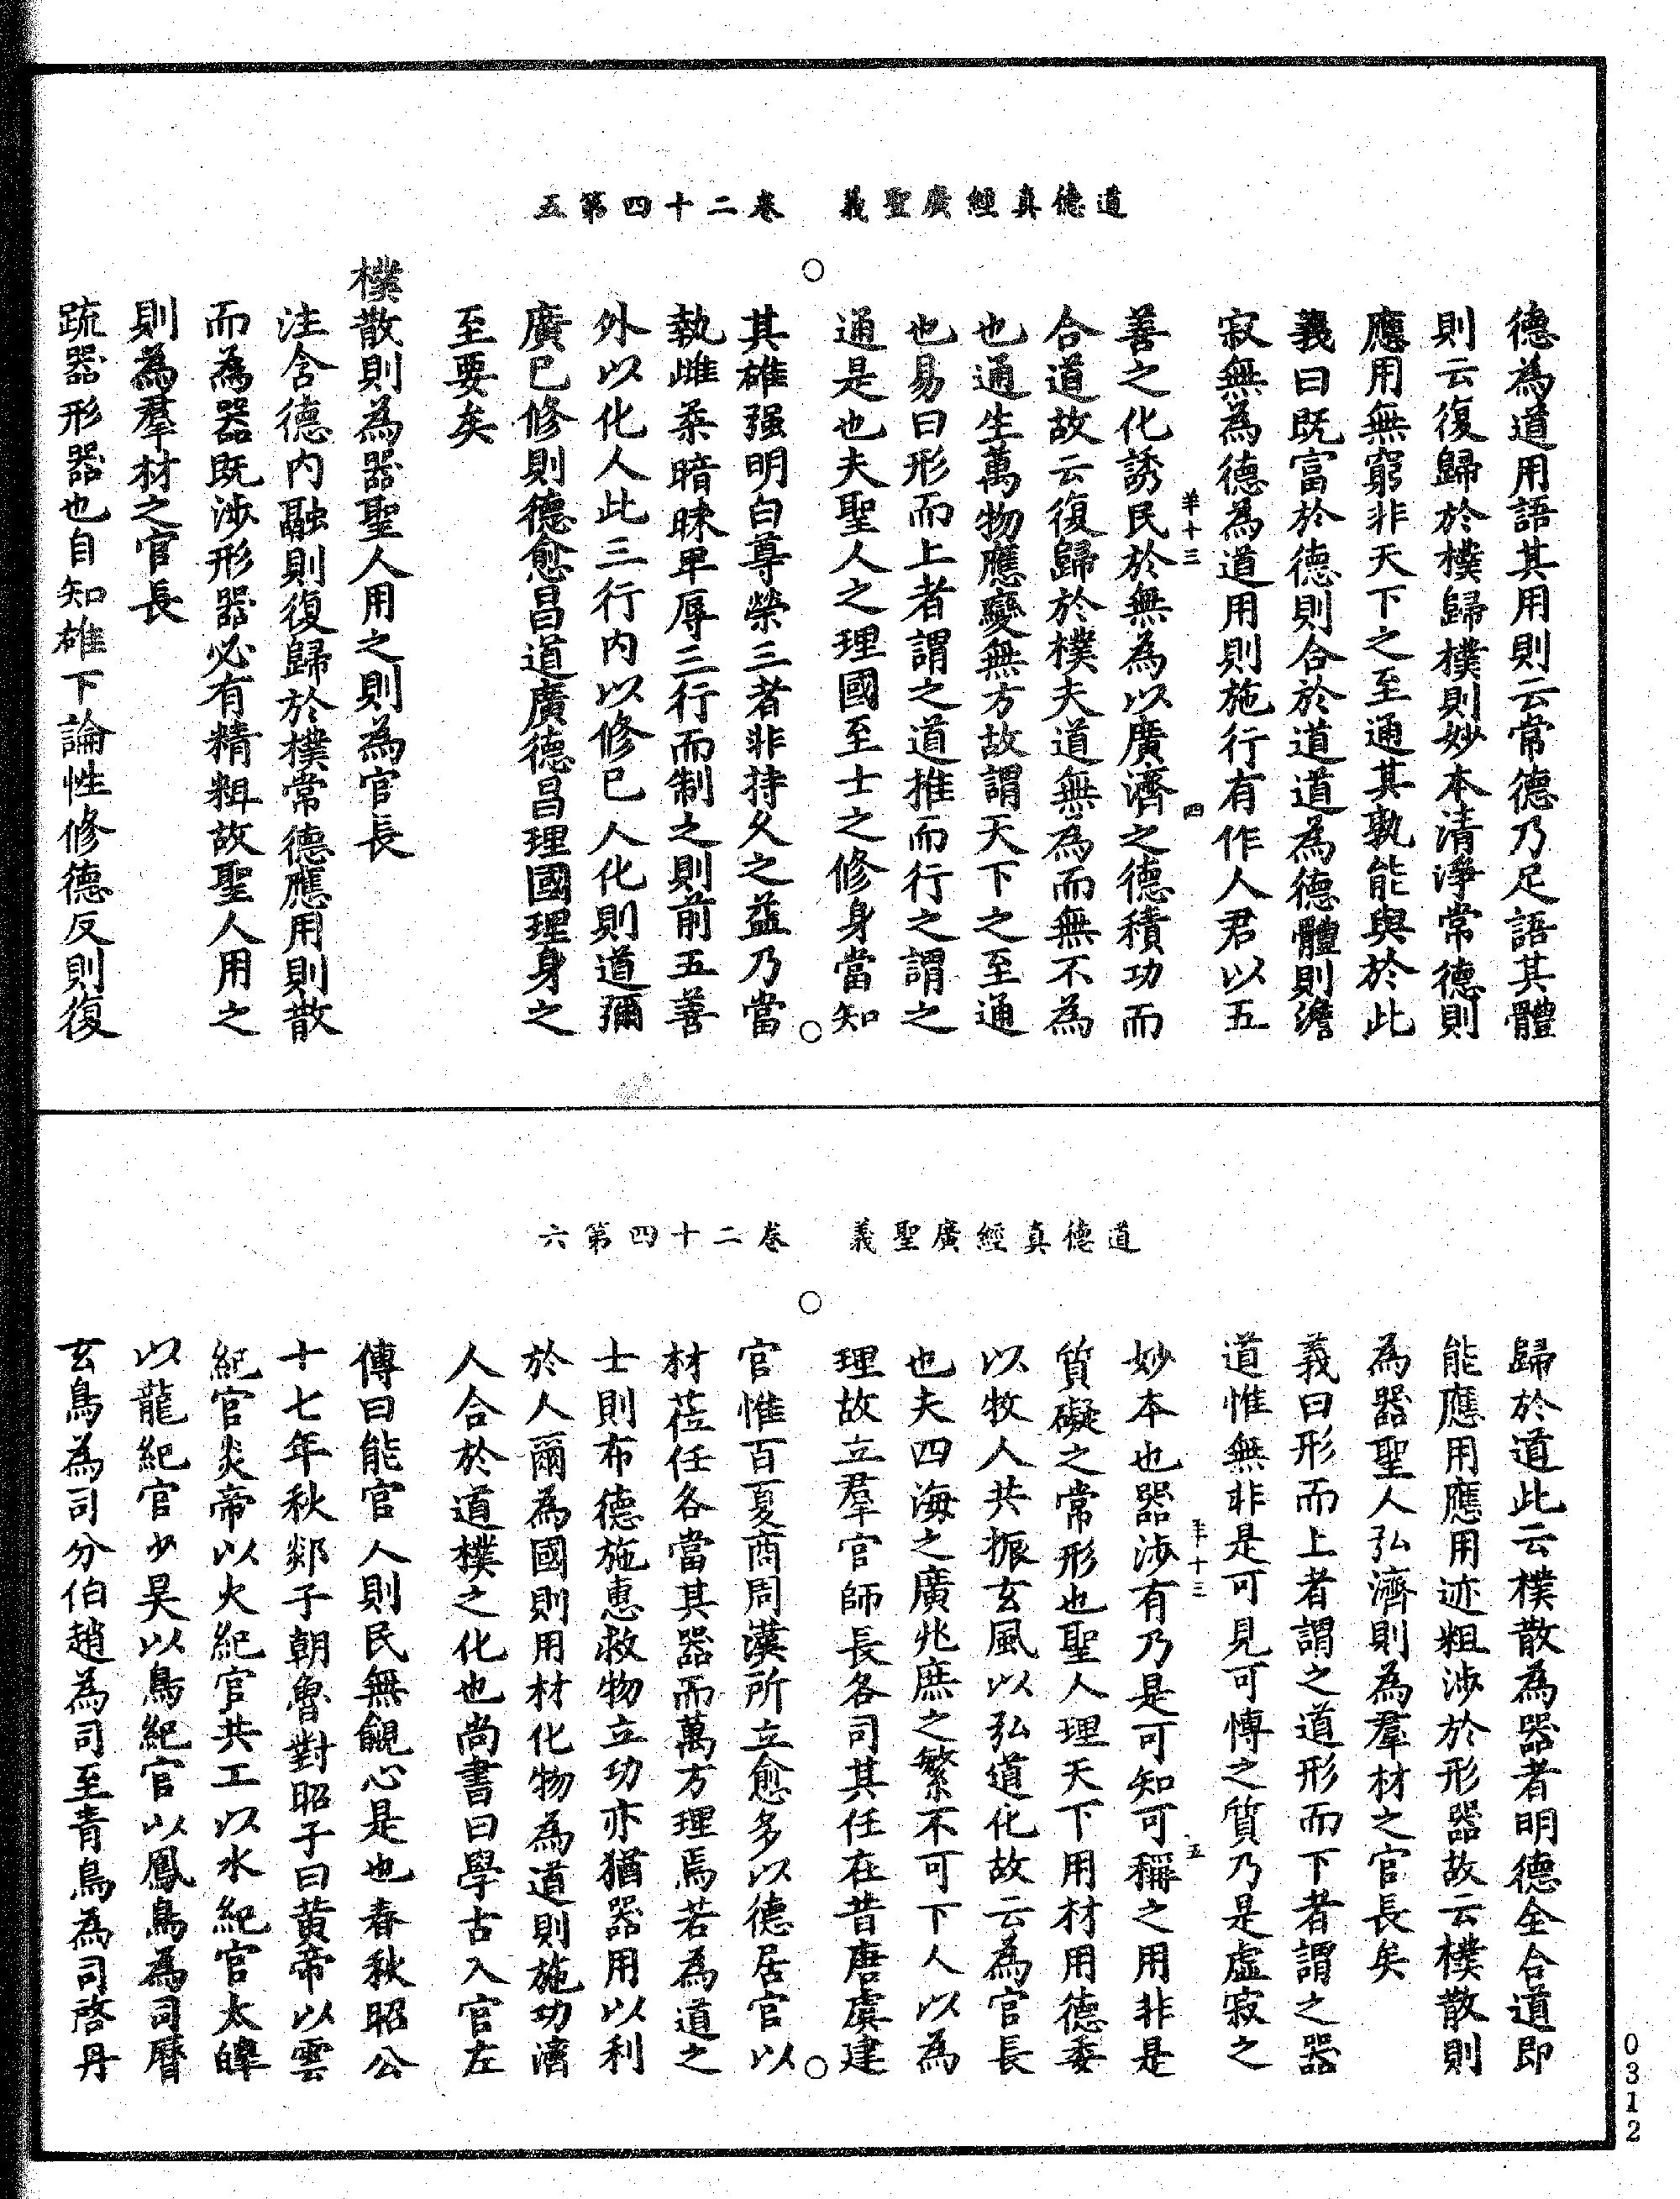 道德真經廣聖義　卷二十四第五
德為道用語其用則云常德乃足語其體
則云復歸於樸歸樸則妙本清淨常德則
應用無窮非天下之至通其孰能與於此
義曰既富於德則合於道道為德體則澹
寂無為德為道用則施行有作人君以五
羊十三　四
善之化誘民於無為以廣濟之德積功而
合道故云復歸於樸夫道無為而無不為
也通生萬物應變無方故謂天下之至通
也易曰形而上者謂之道推而行之謂之
通是也夫聖人之理國至士之修身當知
其雄强明白尊榮三者非持久之益乃當
執雌柔暗昧卑辱三行而制之則前五善
外以化人此三行内以修已人化則道彌
廣已修則德愈昌道廣德昌理國理身之
至要矣
樸散則為器聖人用之則為官長
注含德内融則復歸於樸常德應用則散
而為器既涉形器必有精粗故聖人用之
則為羣材之官長
疏器形器也自知雄下論性修德反則復
道德真經廣聖義　卷二十四第六
歸於道此云樸散為器者明德全合道即
能應用應用迹粗涉於形器故云樸散則
為器聖人弘濟則為羣材之官長矣
義曰形而上者謂之道形而下者謂之器
道惟無非是可見可慱之質乃是虛寂之
羊十三　五
妙本也器涉有乃是可知可稱之用非是
質礙之常形也聖人理天下用材用德委
以牧人共振玄風以弘道化故云為官長
也夫四海之廣兆庶之繁不可下人以為
理故立羣官師長各司其任在昔唐虞建
官惟百夏商周漢所立愈多以德居官以
材莅任各當其器而萬方理焉若為道之
士則布德施惠救物立功亦猶器用以利
於人爾為國則用材化物為道則施功濟
人合於道樸之化也尚書曰學古入官左
傳曰能官人則民無覦心是也春秋昭公
十七年秋郯子朝魯對昭子曰黄帝以雲
紀官炎帝以火紀官共工以水紀官太皥
以龍紀官少昊以鳥紀官以鳳鳥為司曆
玄鳥為司分伯趙為司至青鳥為司啓丹
0312